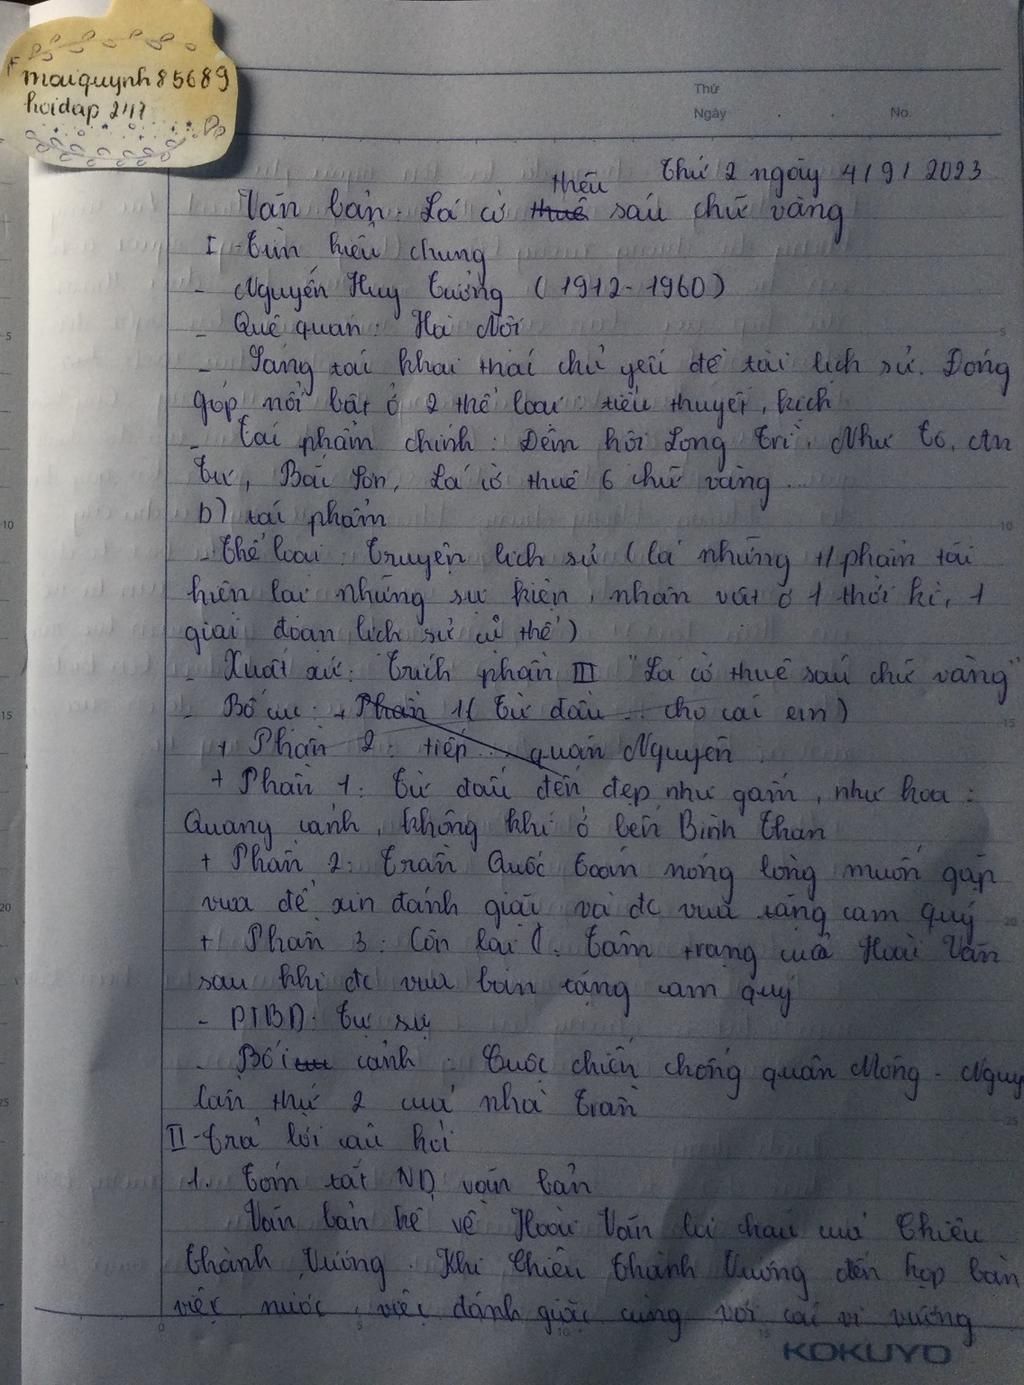 maiquynh85689
hoidap 247
Thứ
Ngày . . No.
Thứ 2 ngày 4/9/2023
thêu
Văn bản: Lá cờ thuê sáu chữ vàng
I - Tìm hiểu chung
- Nguyễn Huy Tưởng (1912-1960)
- Quê quán: Hà Nội
- Sáng tác khai thác chủ yếu đề tài lịch sử. Đóng
góp nổi bật ở 2 thể loại: tiểu thuyết, kịch
- Tác phẩm chính: Đêm hội Long Trì, Như Tô, An
Tư, Bắc Sơn, Lá cờ thuê 6 chữ vàng...
b) tác phẩm
- Thể loại: Truyện lịch sử (là những t/phẩm tái
hiện lại những sự kiện, nhân vật ở 1 thời kì, 1
giai đoạn lịch sử cụ thể)
- Xuất xứ: Trích phần III "Lá cờ thuê sáu chữ vàng"
- Bố cục: + Phần 1 (Từ đầu ... cho cái em)
+ Phần 2: tiếp ... quân Nguyên
+ Phần 1: Từ đầu đến đẹp như gấm, như hoa:
Quang cảnh, không khí ở bến Bình Than
+ Phần 2: Trần Quốc Toản nóng lòng muốn gặp
vua để xin đánh giặc và đc vua tặng cam quý
+ Phần 3: Còn lại (: Tâm trạng của Hoài Văn
sau khi đc vua ban tặng cam quý
- PTBĐ: Tự sự
- Bối cảnh: Cuộc chiến chống quân Mông - Nguy
lần thứ 2 của nhà Trần
II - Trả lời câu hỏi
1. Tóm tắt ND văn bản
Văn bản kể về Hoài Văn là cháu của Chiêu
Thành Vương. Khi Chiêu Thành Vương đến họp bàn
việc nước, việc đánh giặc cùng với các vị vương
KOKUYO